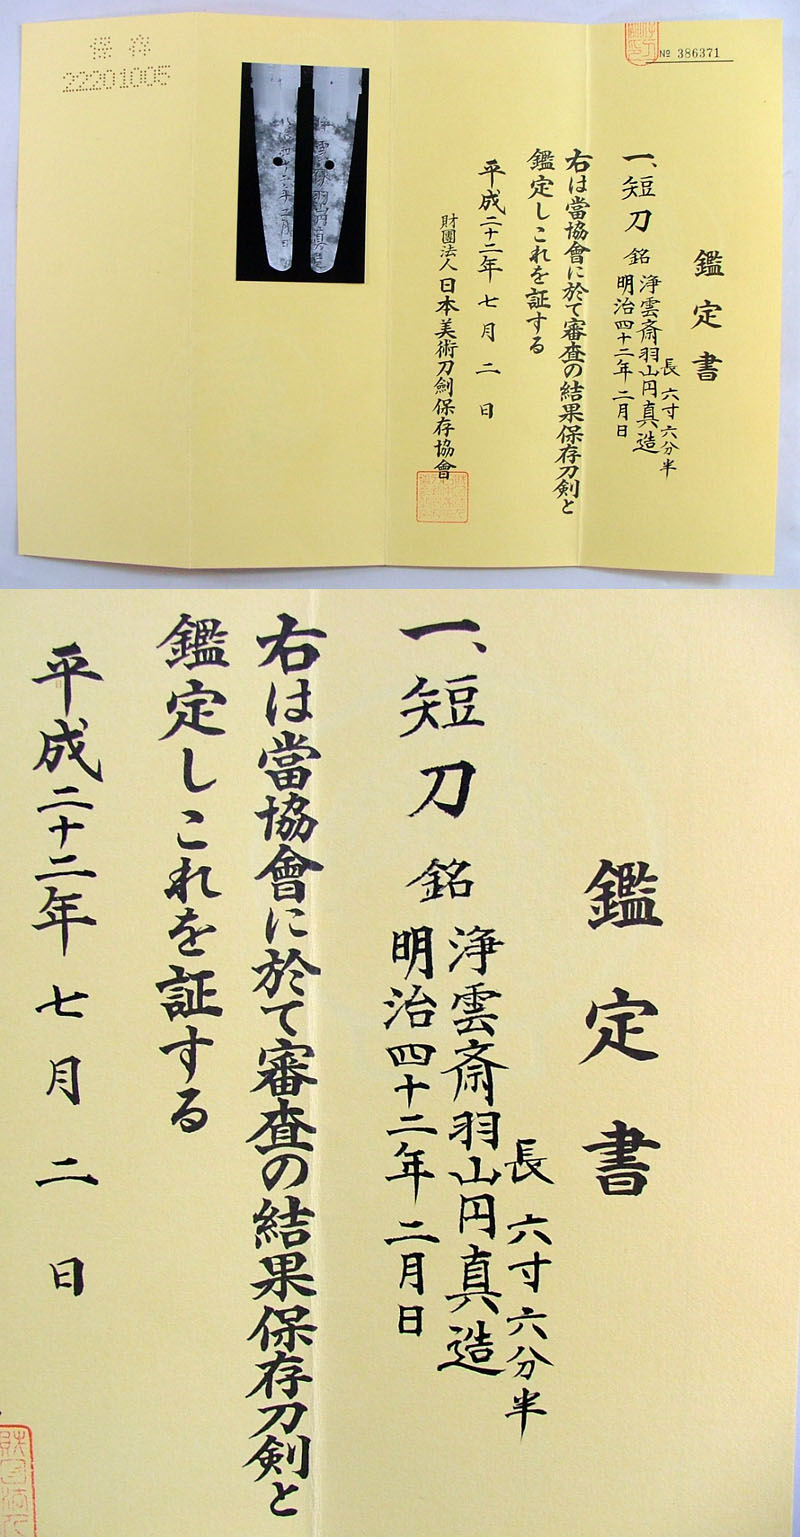 保存
22201005
№ 386371
鑑定書
一、短刀 銘 浄雲斎羽山円真造
明治四十二年二月日
長 六寸六分半
右は當協會に於て審査の結果保存刀剣と
鑑定しこれを証する
平成二十二年七月二日
財團法人 日本美術刀劍保存協會
鑑定書
一、短刀 銘 浄雲斎羽山円真造
明治四十二年二月日
長 六寸六分半
右は當協會に於て審査の結果保存刀剣と
鑑定しこれを証する
平成二十二年七月二日